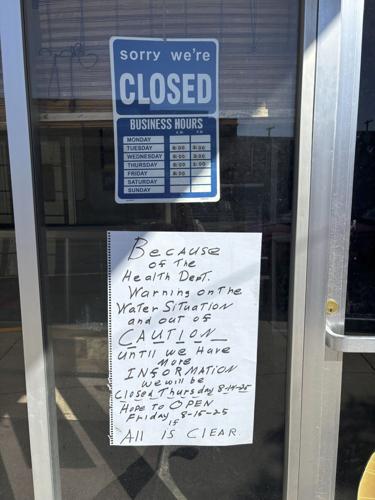 sorry we're
CLOSED
BUSINESS HOURS
MONDAY
TUESDAY 8:00
WEDNESDAY 8:00
THURSDAY 8:00
FRIDAY 8:00
SATURDAY
SUNDAY
BECAUSE
OF THE
Health Dept.
Warning on the
Water SITUATION
and out of
CAUTION
until we Have
More
INFORMATION
we will be
Closed Thursday 8-14-25
HOPE TO OPEN
Friday 8-15-25
IF
All IS CLEAR.